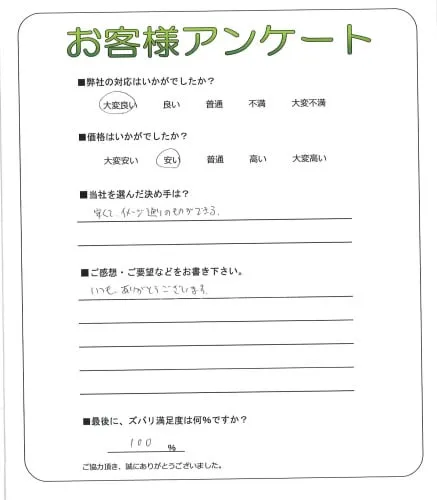 お客様アンケート
■弊社の対応はいかがでしたか？
大変良い 良い 普通 不満 大変不満
■価格はいかがでしたか？
大変安い 安い 普通 高い 大変高い
■当社を選んだ決め手は？
安くて、イメージ通りのものができる。
■ご感想・ご要望などをお書き下さい。
いつも、ありがとうございます。
■最後に、ズバリ満足度は何%ですか？
100 %
ご協力頂き、誠にありがとうございました。